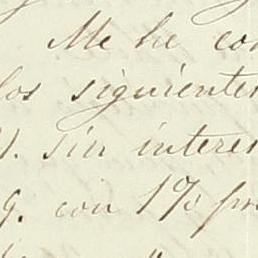 Me he con
los siguientes
sin interes
9. con 1%